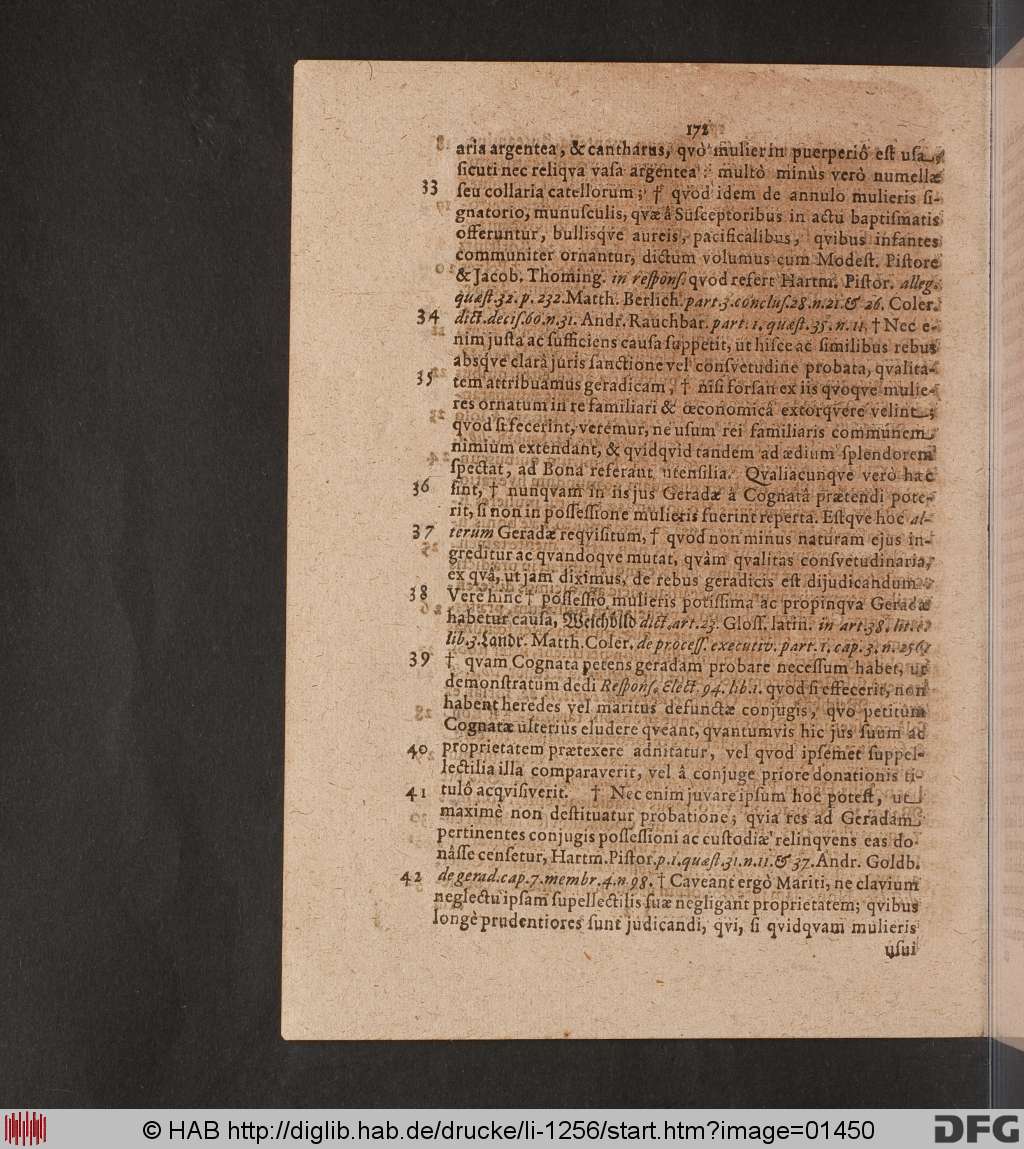 172
aria argentea, & cantharus, qvò mulier in puerperiô est usa,
sicuti nec reliqva vasa argentea: multò minùs verò numellæ
33 seu collaria catellorum; † qvod idem de annulo mulieris si-
gnatorio, munusculis, qvæ â Susceptoribus in actu baptismatis
offeruntur, bullisqve aureis, pacificalibus, qvibus infantes
communiter ornantur, dictum volumus cum Modest. Pistore
& Jacob. Thoming. in respons. qvod refert Hartm. Pistor. alleg.
quæst. 32. p. 232. Matth. Berlich. part. 3. conclus. 28. n. 21. & 26. Coler.
34 dict. decis. 60. n. 31. Andr. Rauchbar. part. 1. quæst. 35. n. 11. † Nec e-
nim justa ac sufficiens causa suppetit, ut hisce ac similibus rebus
absqve clarâ juris sanctione vel consvetudine probata, qvalita-
35 tem attribuamus geradicam, † nisi forsan ex iis qvoqve mulie-
res ornatum in re familiari & œconomicâ extorqvere velint;
qvod si fecerint, veremur, ne usum rei familiaris communem
nimium extendant, & qvidqvid tandem ad ædium splendorem
spectat, ad Bona referant utensilia. Qvaliacunqve verò hæc
36 sint, † nunqvam in iis jus Geradæ â Cognatâ prætendi pote-
rit, si non in possessione mulieris fuerint reperta. Estqve hoc al-
37 terum Geradæ reqvisitum, † qvod non minus naturam ejus in-
greditur ac qvandoqve mutat, qvàm qvalitas consvetudinaria,
ex qvâ, ut jam diximus, de rebus geradicis est dijudicandum.
38 Vere hinc † possessio mulieris potissima ac propinqva Geradæ
habetur causa, Weichbild dict. art. 23. Gloss. latin. in art. 38. lit. c.
lib. 3. Landr. Matth. Coler. de process. executiv. part. 1. cap. 3. n. 256.
39 † qvam Cognata petens geradam probare necessum habet, ut
demonstratum dedi Respons. Elect. 94. lib. 1. qvod si effecerit, non
habent heredes vel maritus defunctæ conjugis, qvo petitum
Cognatæ ulterius eludere qveant, qvantumvis hic jus suum ac
40 proprietatem prætexere adnitatur, vel qvod ipsemet suppel-
lectilia illa comparaverit, vel â conjuge priore donationis ti-
41 tulô acqvisiverit. † Nec enim juvare ipsum hoc potest, ut
maximè non destituatur probatione; qvia res ad Geradam
pertinentes conjugis possessioni ac custodiæ relinqvens eas do-
nâsse censetur, Hartm. Pistor. p. 1. quæst. 31. n. 11. & 37. Andr. Goldb.
42 de gerad. cap. 7. membr. 4. n. 98. † Caveant ergò Mariti, ne clavium
neglectu ipsam supellectilis suæ negligant proprietatem; qvibus
longè prudentiores sunt judicandi, qvi, si qvidqvam mulieris
usui
© HAB http://diglib.hab.de/drucke/li-1256/start.htm?image=01450
DFG